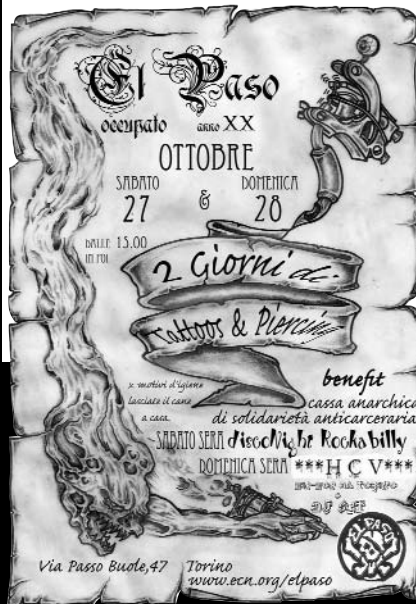 El Paso
occupato anno XX
OTTOBRE
SABATO & DOMENICA
27 28
DALLE 15.00
IN POI
2 Giorni di
Tattoos & Piercing
x motivi d'igiene
lasciate il cane
a casa
benefit
cassa anarchica
di solidarietà anticarceraria
SABATO SERA discoNight Rockabilly
DOMENICA SERA ***H C V***
Via Passo Buole,47 Torino
www.ecn.org/elpaso
EL PASO